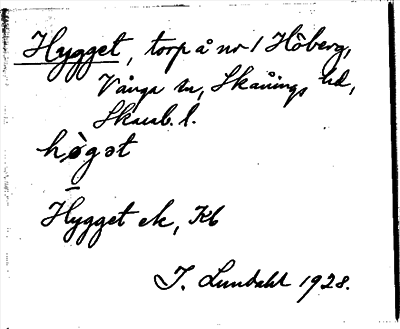 Hygget, torp å nr 1 Höberg,
Vånga sn, Skånings hd,
Skarab. l.
høgǝt
Hygget ek, Kb
J. Lundahl 1928.